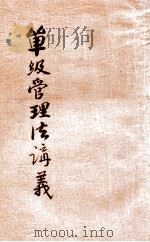 單級管理法講義